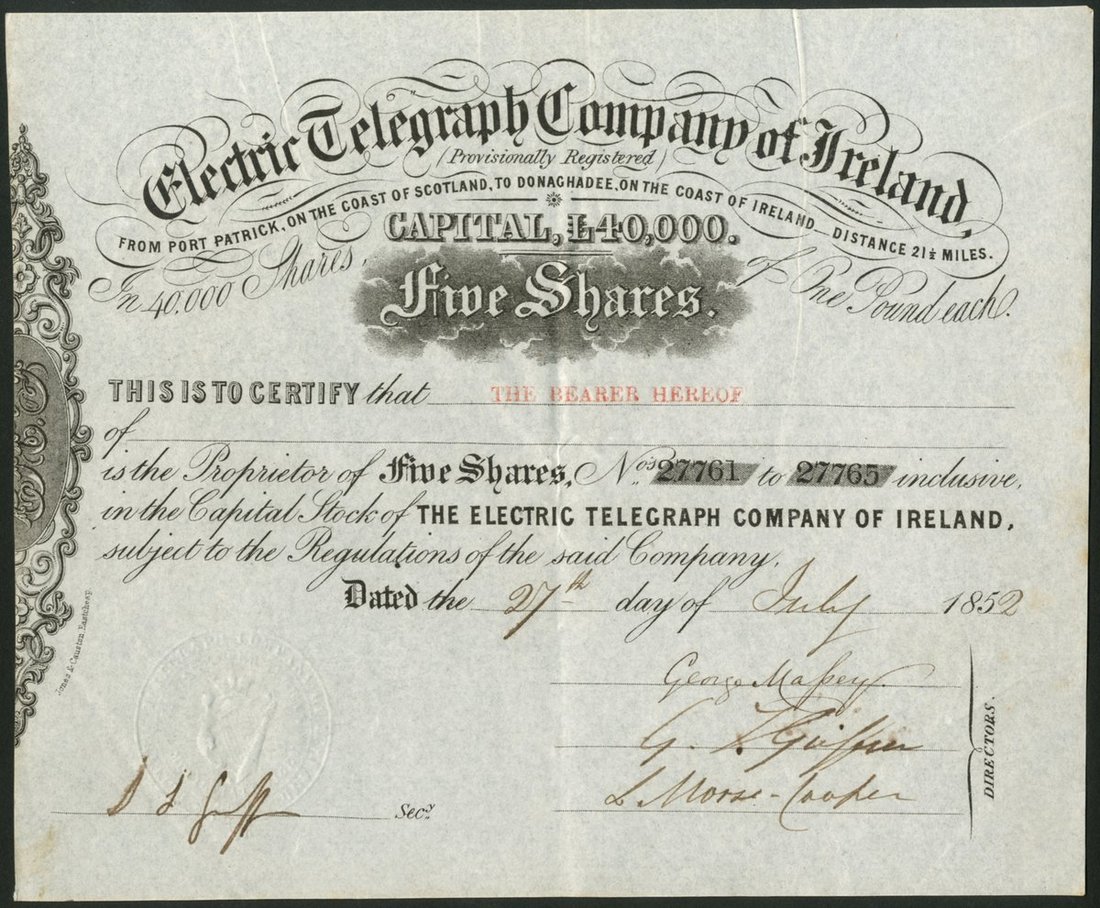 Electric Telegraph Company of Ireland,
(Provisionally Registered)
FROM PORT PATRICK, ON THE COAST OF SCOTLAND, TO DONAGHADEE, ON THE COAST OF IRELAND DISTANCE 21½ MILES.
CAPITAL, £40,000.
In 40,000 Shares, of One Pound each.
Five Shares.
THIS IS TO CERTIFY that THE BEARER HEREOF
of
is the Proprietor of Five Shares, Nos. 27761 to 27765 inclusive,
in the Capital Stock of THE ELECTRIC TELEGRAPH COMPANY OF IRELAND,
subject to the Regulations of the said Company.
Dated the 27th day of July 1852
Jones & Causton Eastcheap.
George Massey
G.
L Morse-Cooper
DIRECTORS.
Secy.